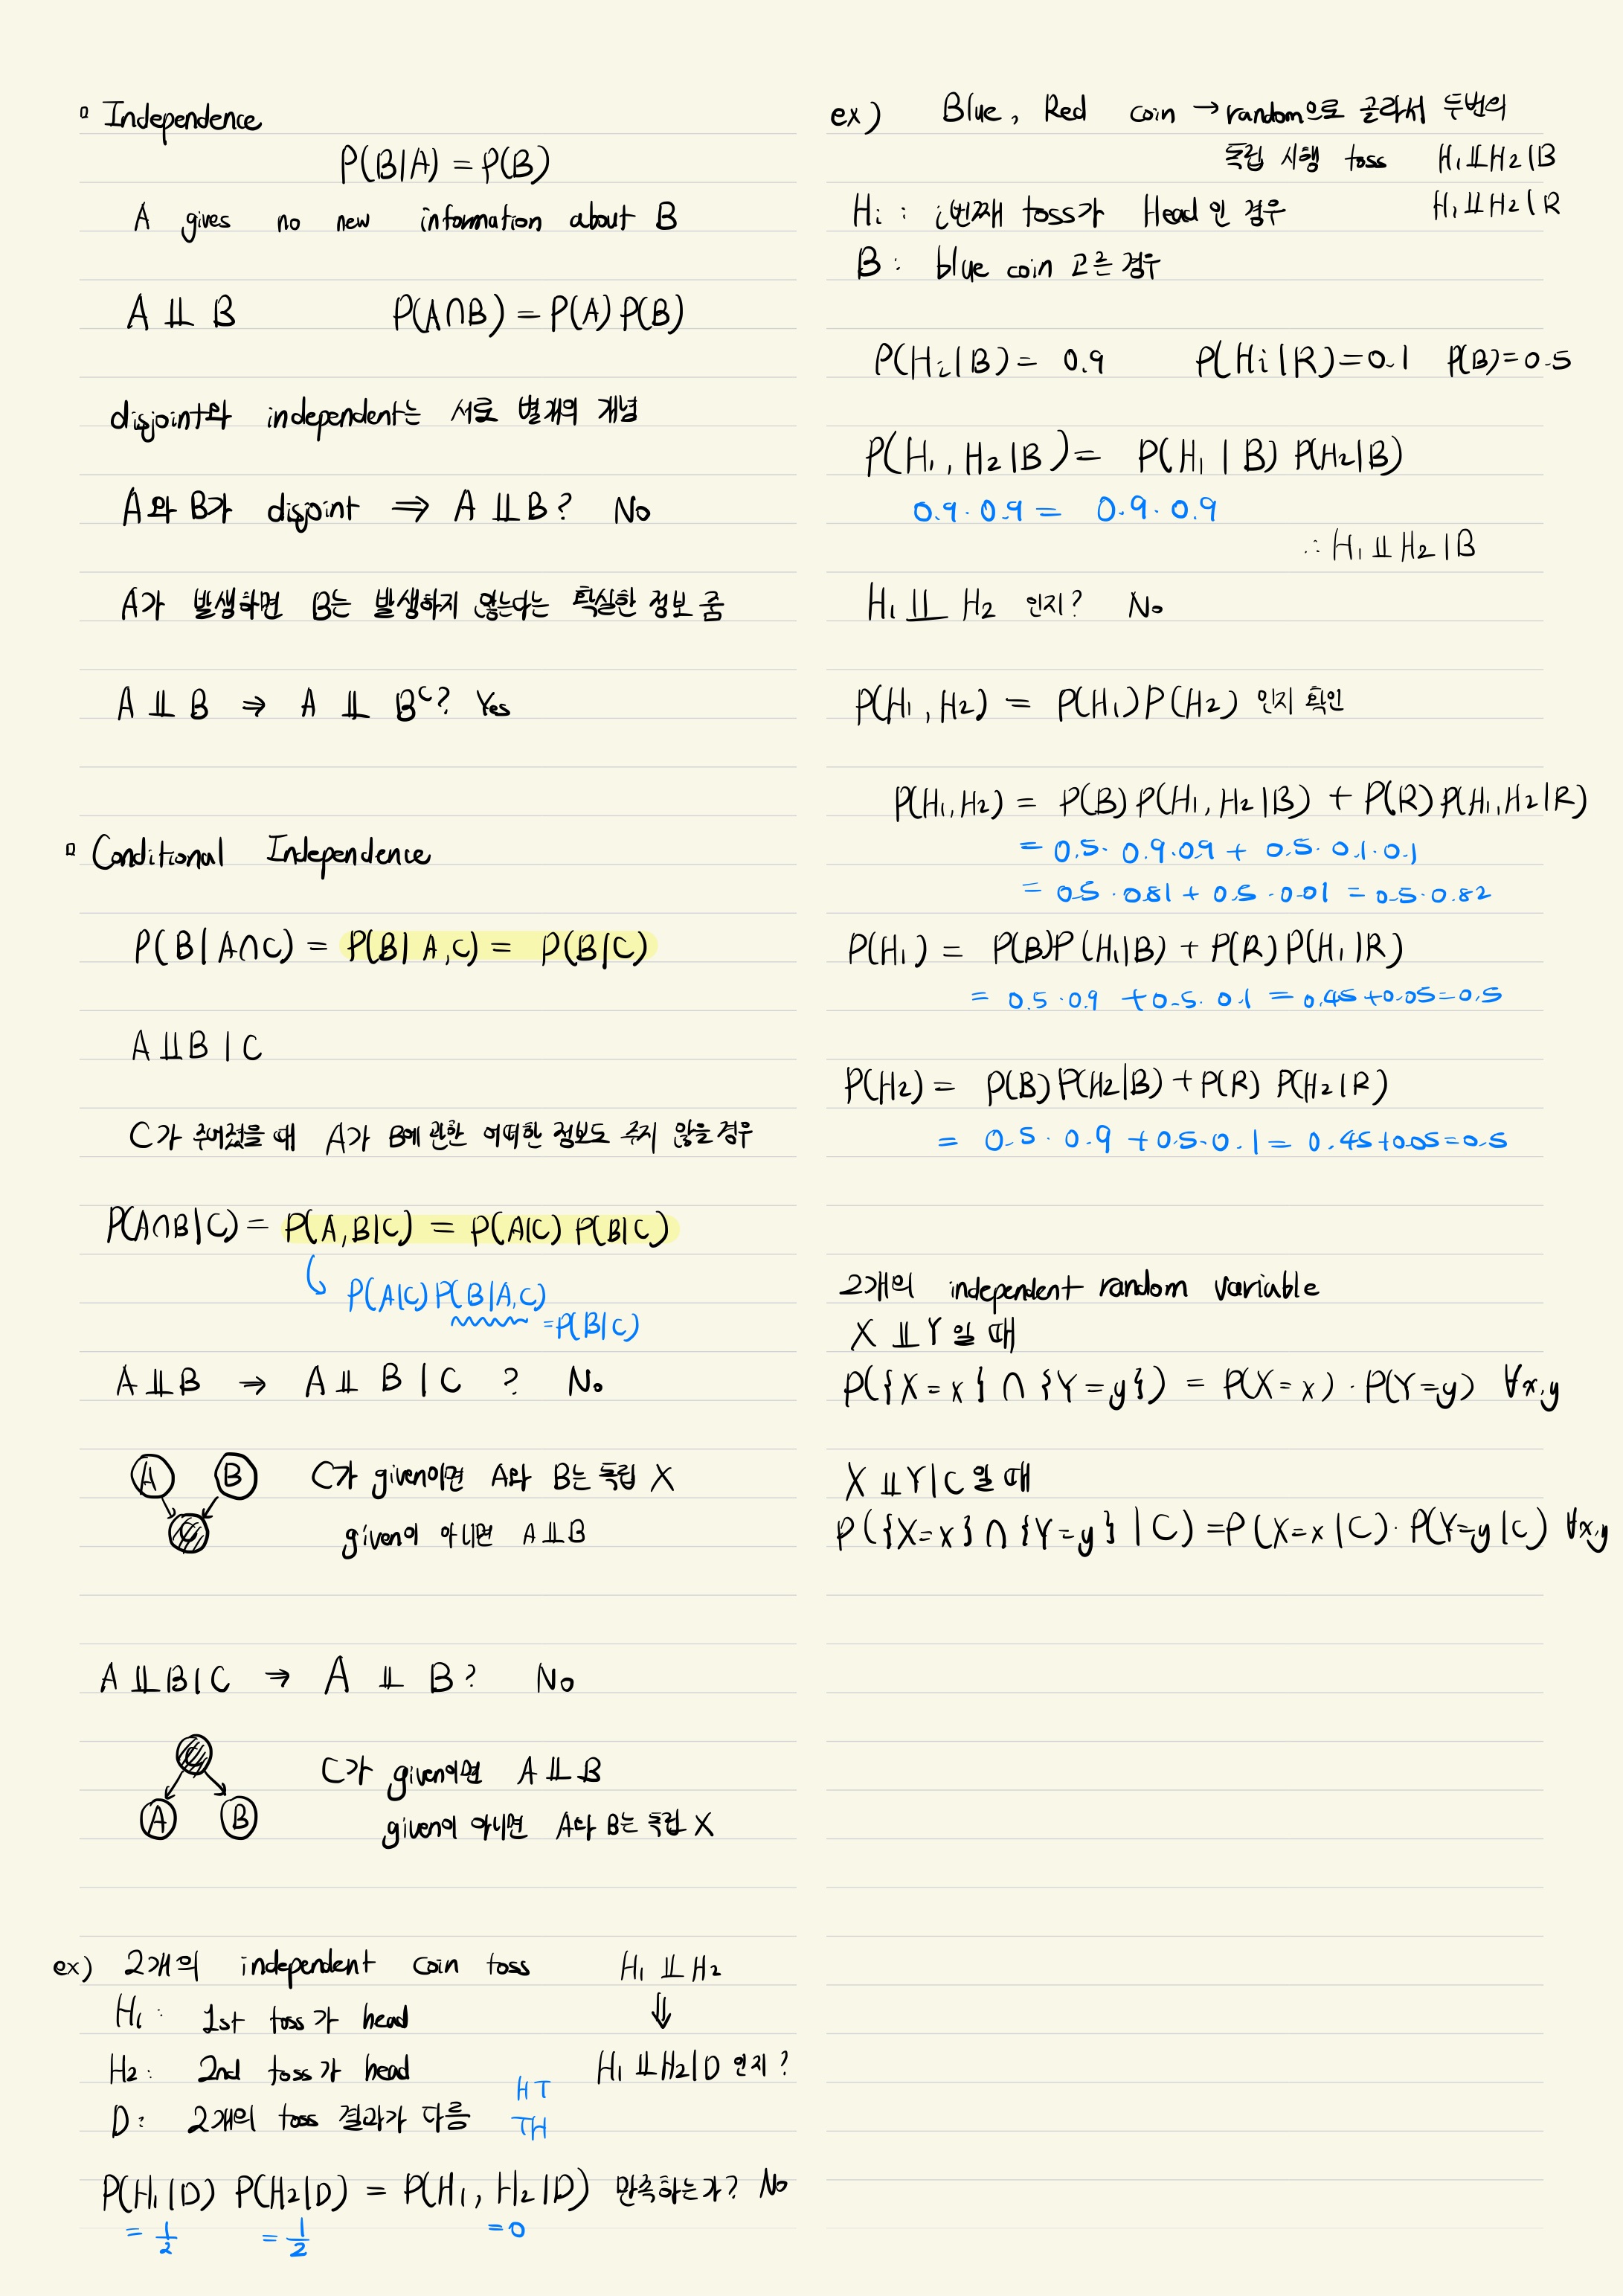 Independence
P(B|A) = P(B)
A gives no new information about B
A ⫫ B P(A∩B) = P(A) P(B)
disjoint와 independent는 서로 별개의 개념
A와 B가 disjoint ⇒ A ⫫ B? No
A가 발생하면 B는 발생하지 않는다는 확실한 정보 줌
A ⫫ B ⇒ A ⫫ Bᶜ? Yes
Conditional Independence
P(B|A∩C) = P(B|A,C) = P(B|C)
A⫫B|C
C가 주어졌을 때 A가 B에 관한 어떠한 정보도 주지 않을 경우
P(A∩B|C) = P(A,B|C) = P(A|C) P(B|C)
P(A|C) P(B|A,C)
=P(B|C)
A⫫B → A⫫B|C ? No
A B C가 given이면 A와 B는 독립 X
C given이 아니면 A⫫B
A⫫B|C → A ⫫ B? No
C C가 given이면 A⫫B
A B given이 아니면 A와 B는 독립 X
ex) 2개의 independent coin toss H₁⫫H₂
H₁: 1st toss가 head ⇓
H₂: 2nd toss가 head H₁⫫H₂|D 인지?
HT
D: 2개의 toss 결과가 다름 TH
P(H₁|D) P(H₂|D) = P(H₁, H₂|D) 만족하는가? No
= 1/2 = 1/2 =0
ex) Blue, Red coin → random으로 골라서 두번의
독립 시행 toss H₁⫫H₂|B
Hi: i번째 toss가 Head인 경우 H₁⫫H₂|R
B: blue coin 고른 경우
P(Hi|B) = 0.9 P(Hi|R)=0.1 P(B)=0.5
P(H₁,H₂|B) = P(H₁|B) P(H₂|B)
0.9·0.9 = 0.9·0.9
∴ H₁⫫H₂|B
H₁⫫H₂ 인지? No
P(H₁,H₂) = P(H₁)P(H₂) 인지 확인
P(H₁,H₂) = P(B)P(H₁,H₂|B) + P(R)P(H₁,H₂|R)
= 0.5·0.9·0.9 + 0.5·0.1·0.1
= 0.5·0.81 + 0.5·0.01 = 0.5·0.82
P(H₁) = P(B)P(H₁|B) + P(R)P(H₁|R)
= 0.5·0.9 + 0.5·0.1 = 0.45+0.05=0.5
P(H₂) = P(B)P(H₂|B) + P(R) P(H₂|R)
= 0.5·0.9 + 0.5·0.1 = 0.45+0.05=0.5
2개의 independent random variable
X⫫Y일 때
P({X=x}∩{Y=y}) = P(X=x)·P(Y=y) ∀x,y
X⫫Y|C일 때
P({X=x}∩{Y=y}|C) = P(X=x|C)·P(Y=y|C) ∀x,y